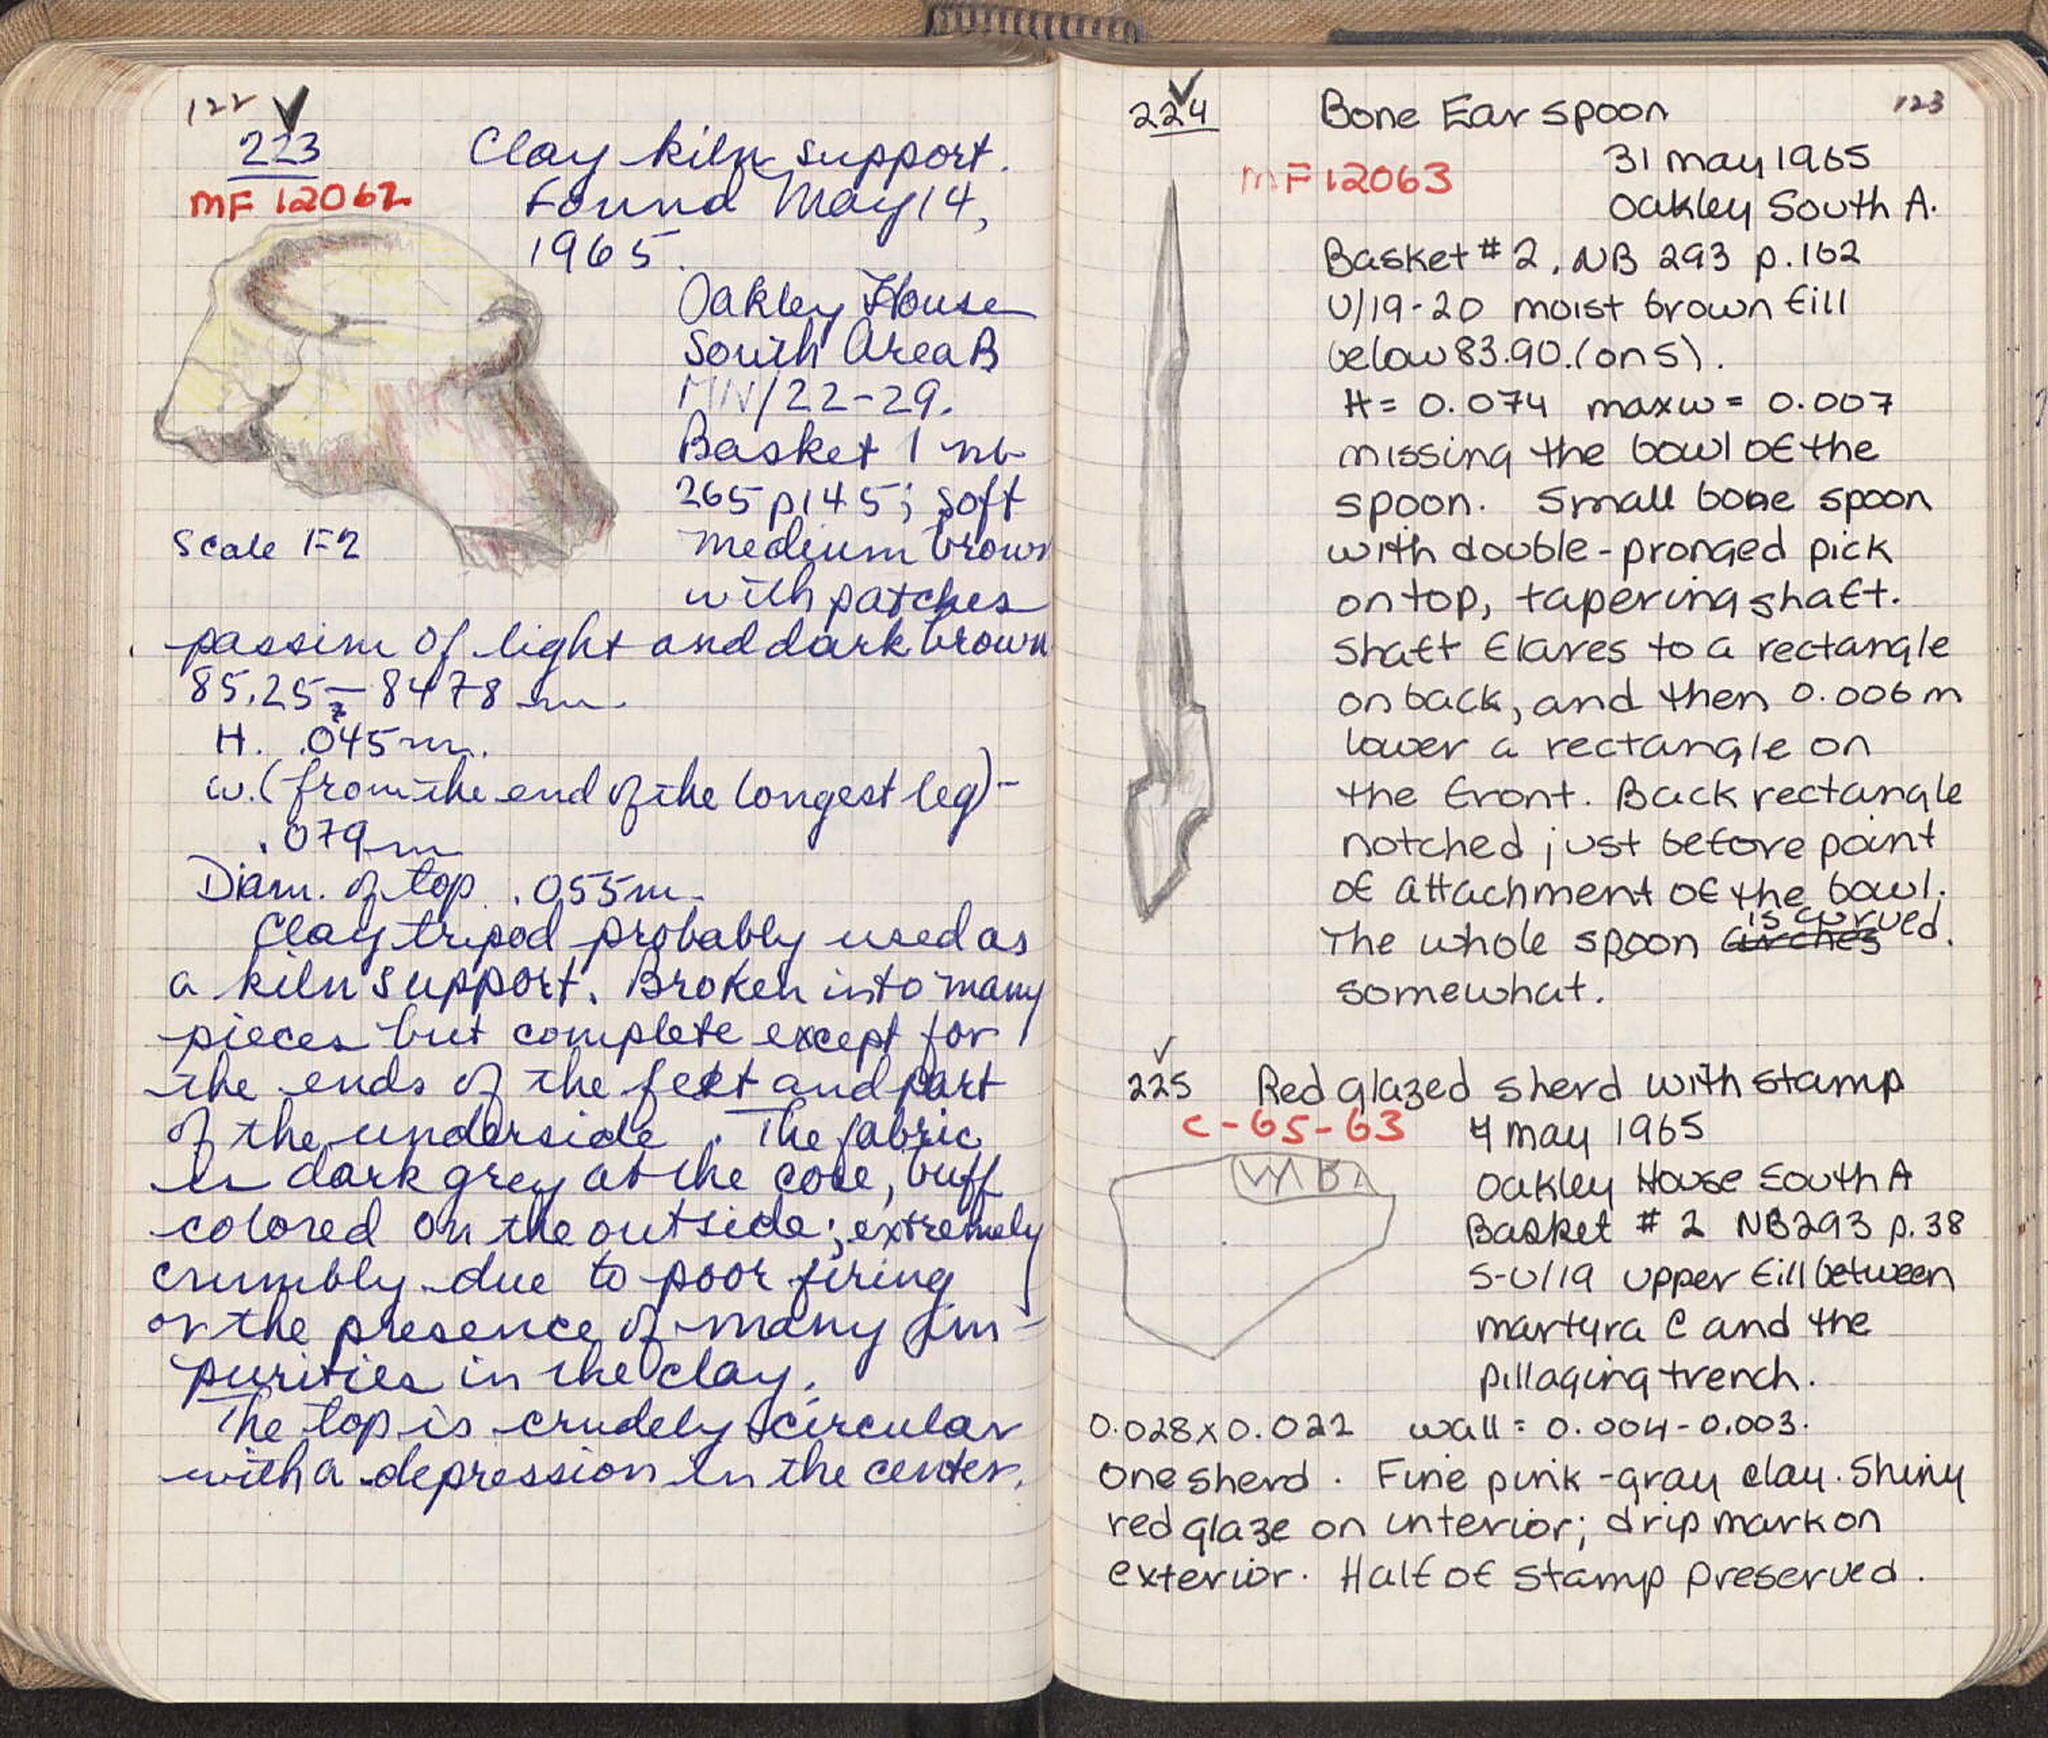 122
223
Clay kiln support.
MF 12062
Found May 14,
1965.
Oakley House
South Area B
MN/22-29.
Basket 1 nb
265 p145; soft
medium brown
with patches
Scale 1=2
passim of light and dark brown
85.25-8478 m
H. .045 m.
w. (from the end of the longest leg) -
.079 m
Diam. of top .055 m.
Clay tripod probably used as
a kiln support. Broken into many
pieces but complete except for
the ends of the feet and part
of the underside. The fabric
is dark grey at the core, buff
colored on the outside; extremely
crumbly due to poor firing
or the presence of many im-
purities in the clay.
The top is crudely circular
with a depression in the center.
123
224 Bone Ear spoon
MF 12063
31 may 1965
Oakley South A.
Basket #2, NB 293 p.162
U/19-20 moist brown fill
below 83.90. (on S).
H = 0.074 max w = 0.007
missing the bowl of the
spoon. Small bone spoon
with double-pronged pick
on top, tapering shaft.
Shaft flares to a rectangle
on back, and then 0.006 m
lower a rectangle on
the front. Back rectangle
notched just before point
of attachment of the bowl.
The whole spoon arches is curved.
somewhat.
225 Red glazed sherd with stamp
C-65-63
4 may 1965
Oakley House South A
Basket # 2 NB293 p.38
S-U/19 upper fill between
martyra C and the
pillaging trench.
0.028 x 0.022 wall = 0.004-0.003.
One sherd. Fine pink-gray clay. Shiny
red glaze on interior; drip mark on
exterior. Half of stamp preserved.